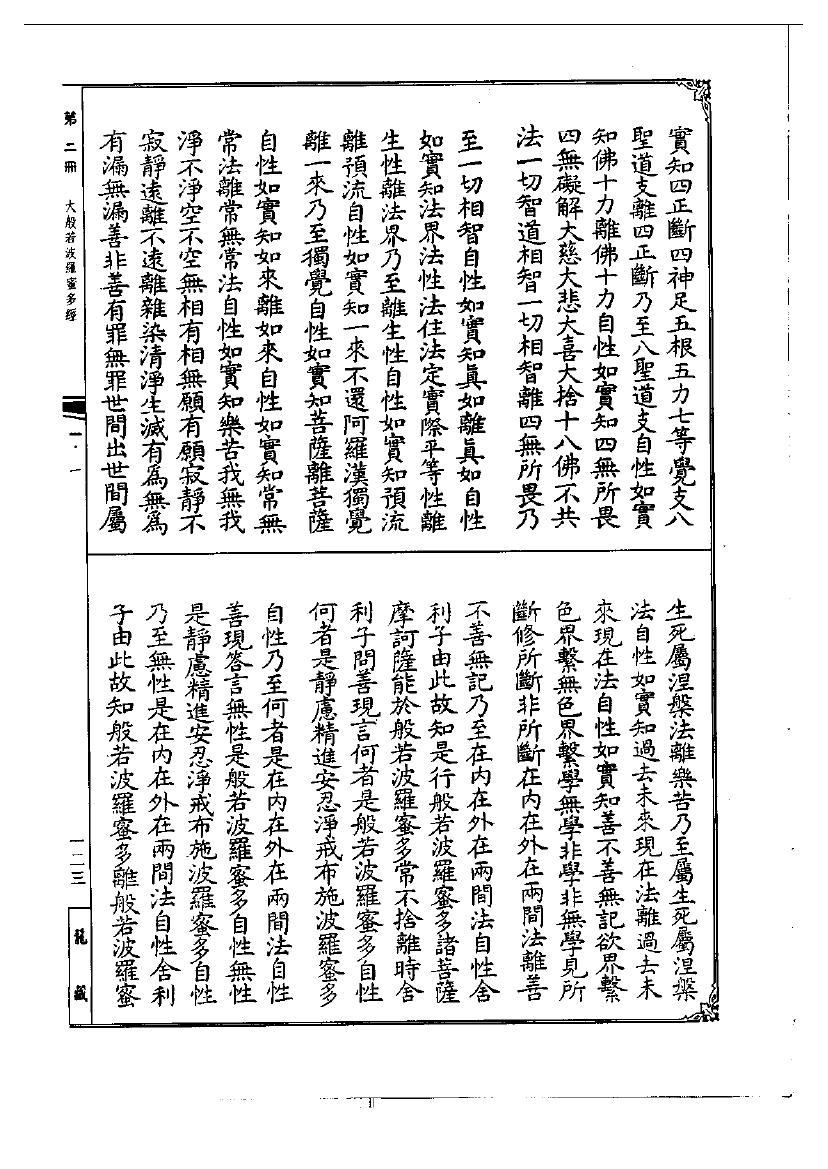 實知四正斷四神足五根五力七等覺支八
聖道支離四正斷乃至八聖道支自性如實
知佛十力離佛十力自性如實知四無所畏
四無礙解大慈大悲大喜大捨十八佛不共
法一切智道相智一切相智離四無所畏乃
至一切相智自性如實知眞如離眞如自性
如實知法界法性法住法定實際平等性離
生性離法界乃至離生性自性如實知預流
離預流自性如實知一來不還阿羅漢獨覺
離一來乃至獨覺自性如實知菩薩離菩薩
自性如實知如來離如來自性如實知常無
常法離常無常法自性如實知樂苦我無我
淨不淨空不空無相有相無願有願寂靜不
寂靜遠離不遠離雜染清淨生滅有爲無爲
有漏無漏善非善有罪無罪世間出世間屬
生死屬涅槃法離樂苦乃至屬生死屬涅槃
法自性如實知過去未來現在法離過去未
來現在法自性如實知善不善無記欲界繫
色界繫無色界繫學無學非學非無學見所
斷修所斷非所斷在內在外在兩間法離善
不善無記乃至在內在外在兩間法自性舍
利子由此故知是行般若波羅蜜多諸菩薩
摩訶薩能於般若波羅蜜多常不捨離時舍
利子問善現言何者是般若波羅蜜多自性
何者是靜慮精進安忍淨戒布施波羅蜜多
自性乃至何者是在內在外在兩間法自性
善現答言無性是般若波羅蜜多自性無性
是靜慮精進安忍淨戒布施波羅蜜多自性
乃至無性是在內在外在兩間法自性舍利
子由此故知般若波羅蜜多離般若波羅蜜
第二冊 大般若波羅蜜多經
一·一
一二三
龍藏